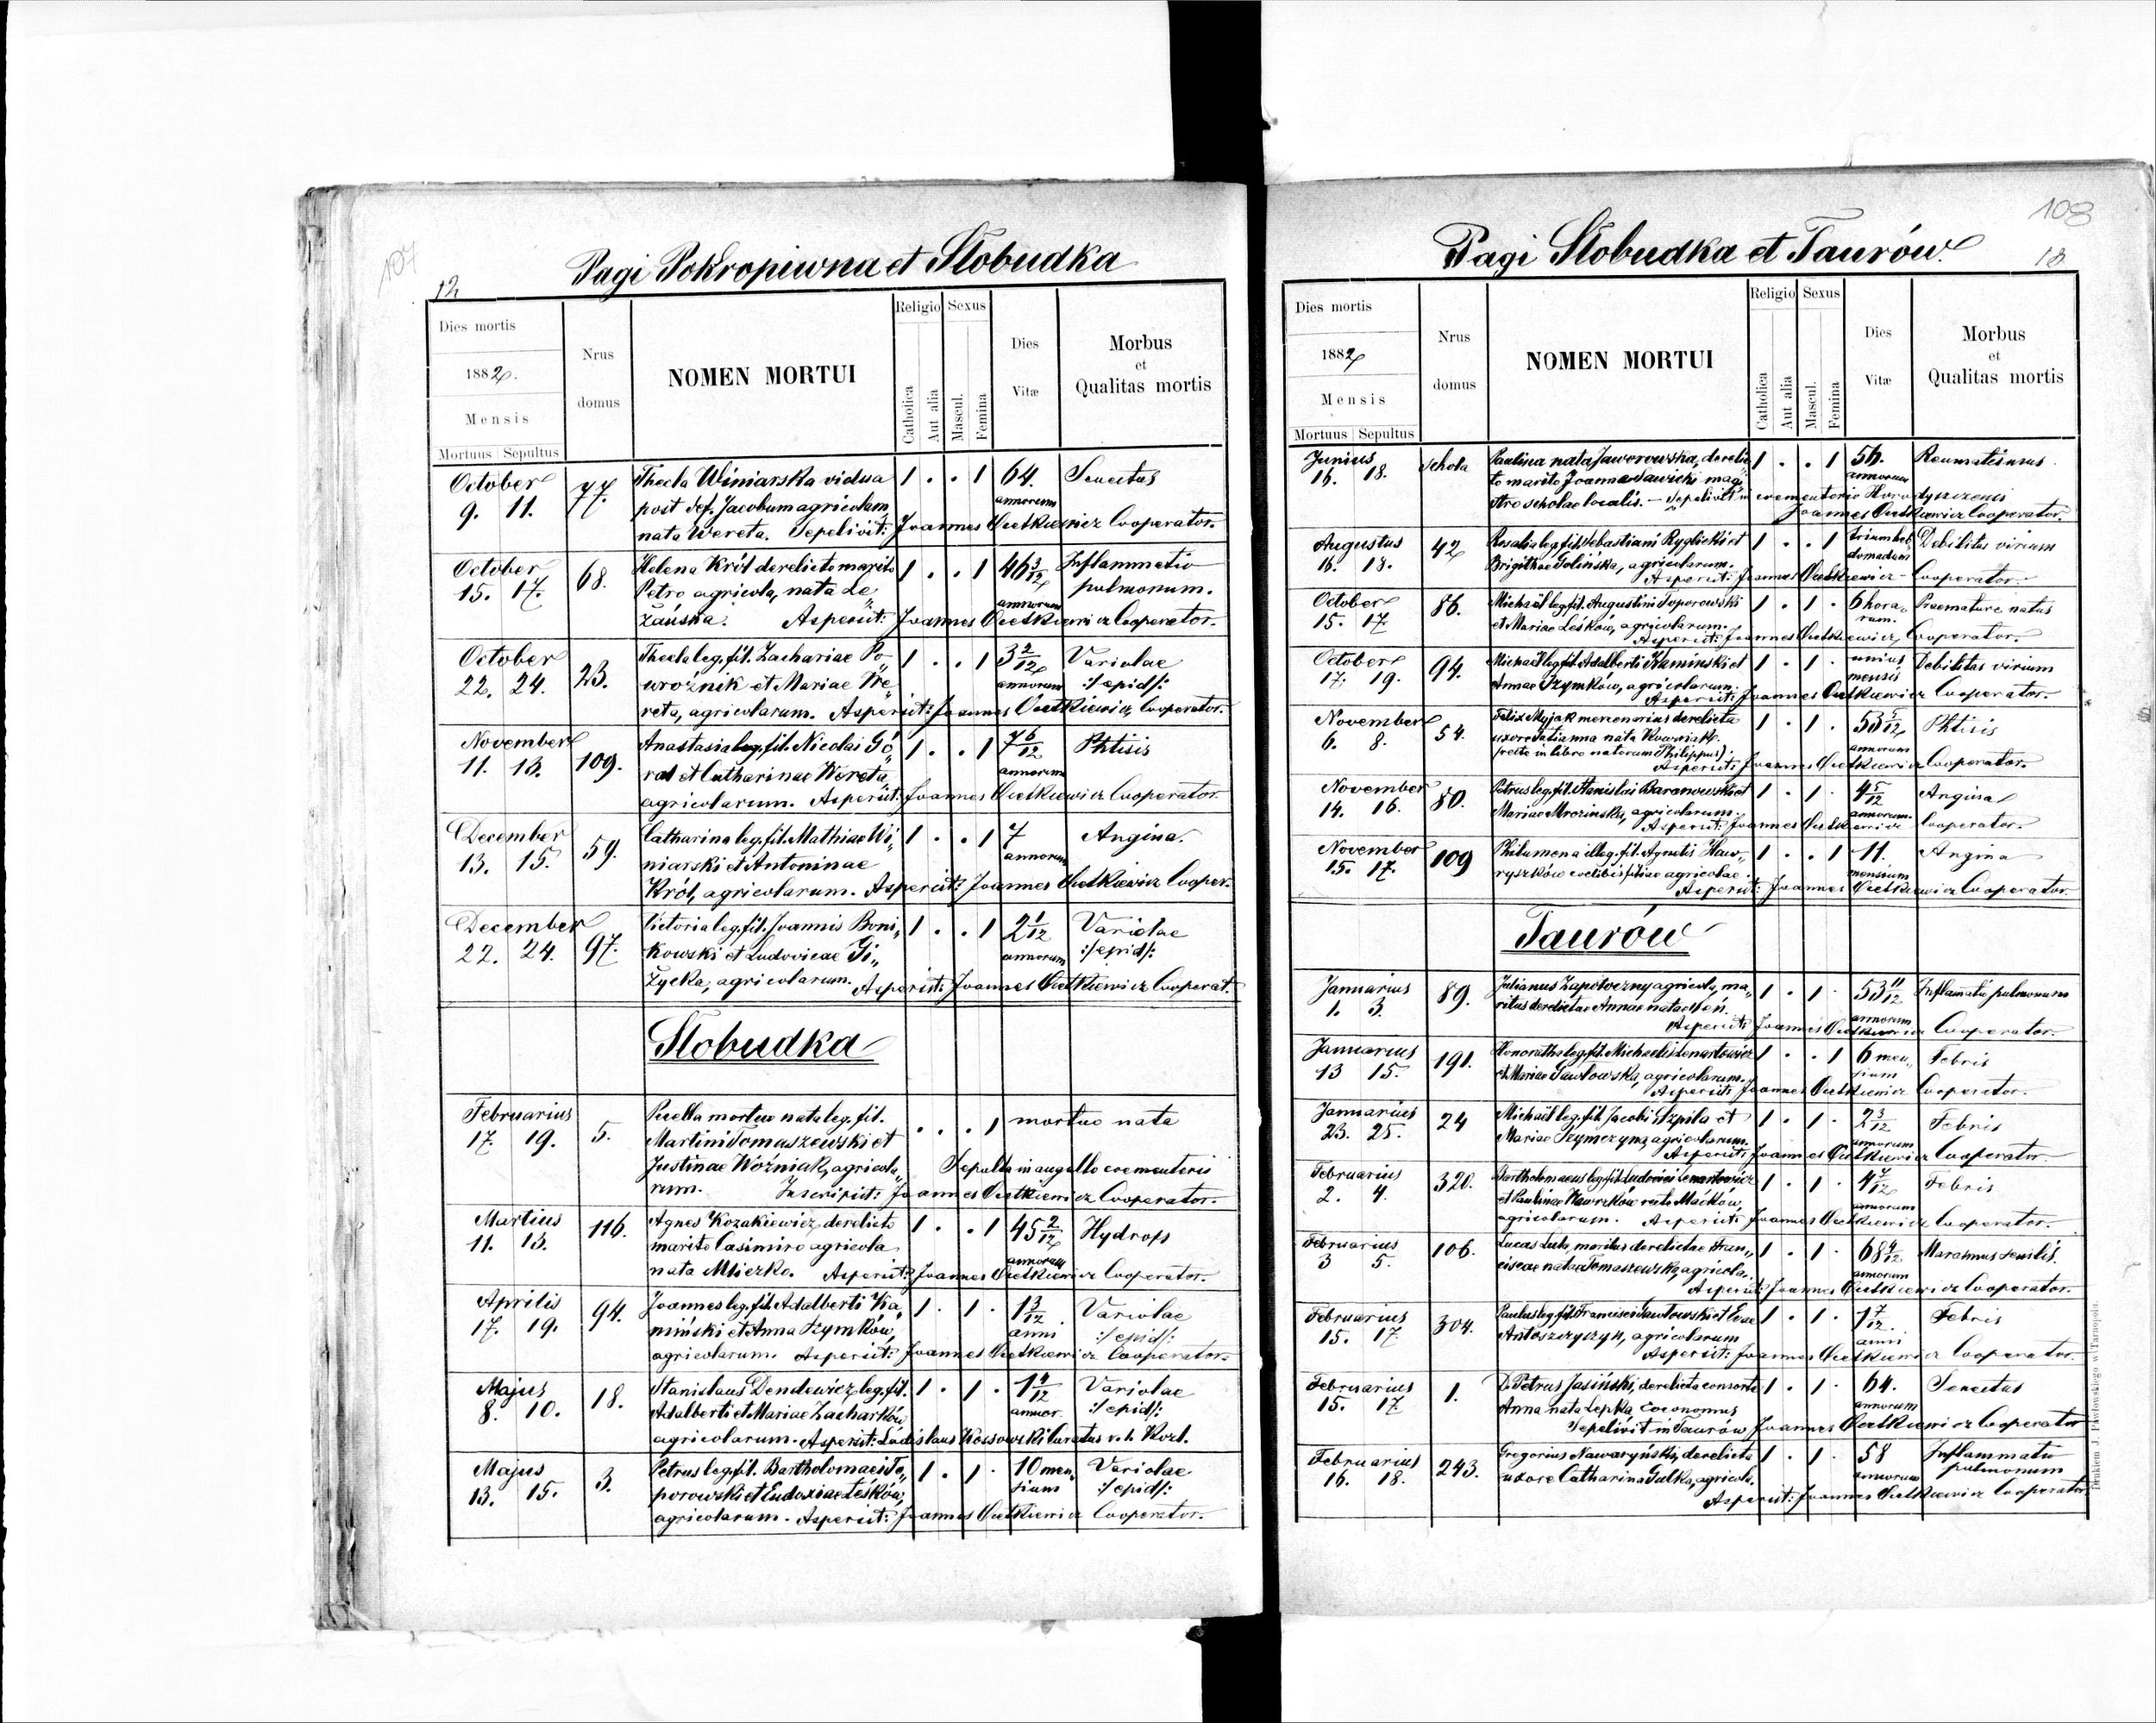 107
12
Pagi Pokropiwna et Słobudka
Dies mortis
1882.
Mensis
Mortuus Sepultus
Nrus domus
NOMEN MORTUI
Religio Sexus
Catholica Aut alia Mascul. Femina
Dies Vitæ
Morbus et Qualitas mortis
October 9. 11. 77. Thecla Winiarska vidua 1 . . 1 64. annorum Senectus
post def. Jacobum agricolam
nata Wereta. Sepelivit: Joannes Cooperator.
October 15. 17. 68. Helena Król derelicto marito 1 . . 1 46 3/12 annorum Inflammatio pulmonum.
Petro agricola, nata Le„
żańska. Aspersit: Joannes Cooperator.
October 22. 24. 23. Thecla leg. fil. Zachariae Po„ 1 . . 1 3 2/12 annorum Variolae :/epid/:
wroźnik et Mariae We„
reta, agricolarum. Aspersit: Joannes Cooperator.
November 11. 13. 109. Anastasia leg. fil. Nicolai Gó„ 1 . . 1 7 6/12 annorum Phtisis
ral et Catharinae Wereta,
agricolarum. Aspersit: Joannes Cooperator.
December 13. 15. 59. Catharina leg. fil. Mathiae Wi„ 1 . . 1 7 annorum Angina.
niarski et Antoninae
Król, agricolarum. Aspersit: Joannes Cooper.
December 22. 24. 97. Victoria leg. fil. Joannis Boni„ 1 . . 1 2 1/12 annorum Variolae :/epid/:
kowski et Ludovicae Gi„
życka, agricolarum. Aspersit: Joannes Cooperat.
Słobudka
Februarius 17. 19. 5. Puella mortuo nata leg. fil. . . . 1 mortuo nata
Martini Tomaszewski et
Justinae Woźniak, agricola„ Sepulta in angello coementerii
rum. Inscripsit: Joannes Cooperator.
Martius 11. 13. 116. Agnes Kozakiewicz, derelicto 1 . . 1 45 2/12 annorum Hydrops
marito Casimiro agricola
nata Mleczko. Aspersit: Joannes Cooperator.
Aprilis 17. 19. 94. Joannes leg. fil. Adalberti Ka„ 1 . 1 . 1 3/12 anni Variolae :/epid/:
miński et Anna Szymków,
agricolarum. Aspersit: Joannes Cooperator.
Majus 8. 10. 18. Stanislaus Dendewicz leg. fil. 1 . 1 . 1 4/12 annor. Variolae :/epid/:
Adalberti et Mariae Zacharków
agricolarum. Aspersit: Ladislaus Kossowski Curatus r. l. Kozl.
Majus 13. 15. 3. Petrus leg. fil. Bartholomaei To„ 1 . 1 . 10 men„sium Variolae :/epid/:
porowski et Eudoxiae Leśków,
agricolarum. Aspersit: Joannes Cooperator.
108
13
Pagi Słobudka et Taurów.
Dies mortis
1882
Mensis
Mortuus Sepultus
Nrus domus
NOMEN MORTUI
Religio Sexus
Catholica Aut alia Mascul. Femina
Dies Vitæ
Morbus et Qualitas mortis
Junius 16. 18. Schola Paulina nata Jaworowska, derelic„ 1 . . 1 56. annorum Reumatismus.
to marito Joanne Sawicki magi„
stro scholae localis. — Sepelivit in coementerio Horodyszcensi
Joannes Cooperator.
Augustus 16. 18. 42 Rosalia leg. fil. Sebastiani Ryglicki et 1 . . 1 trium heb„domadum Debilitas virium
Brigittae Solińska, agricolarum.
Aspersit: Joannes Cooperator.
October 15. 17. 86. Michaël leg. fil. Augustini Toporowski 1 . 1 . 6 hora„rum. Praemature natus
et Mariae Leśków, agricolarum.
Aspersit: Joannes Cooperator.
October 17. 19. 94. Michaël leg. fil. Adalberti Kamiński et 1 . 1 . unius mensis Debilitas virium
Annae Szymków, agricolarum.
Aspersit: Joannes Cooperator.
November 6. 8. 54. Felix Myjak mercenarius derelicta 1 . 1 . 53 5/12 annorum Phtisis
uxore Tatianna nata
(recte in libro natorum Philippus).
Aspersit: Joannes Cooperator.
November 14. 16. 80. Petrus leg. fil. Stanislai Baranowski et 1 . 1 . 4 5/12 annorum. Angina
Mariae Mrozińska, agricolarum.
Aspersit: Joannes Cooperator.
November 15. 17. 109 Philumena illeg. fil. Agnetis Haw„ 1 . . 1 11. mensium Angina
ryszków coelibis filiae agricolae.
Aspersit: Joannes Cooperator.
Taurów
Januarius 1. 3. 89. Julianus Zapotoczny agricola, ma„ 1 . 1 . 53 11/12 annorum Inflamatio pulmonum
ritus derelictae Annae natae
Aspersit: Joannes Cooperator.
Januarius 13 15. 191. Honoratha leg. fil. Michaelis Lenartowicz 1 . . 1 6 men„sium Febris
et Mariae Gawłowska, agricolarum.
Aspersit: Joannes Cooperator.
Januarius 23. 25. 24 Michaël leg. fil. Jacobi Szpila et 1 . 1 . 2 3/12 annorum Febris
Mariae Szymczyna, agricolarum.
Aspersit: Joannes Cooperator.
Februarius 2. 4. 320. Bartholomaeus leg. fil. Ludovici Lenartowicz 1 . 1 . 4 7/12 annorum Febris
et Paulinae Wawrzków nata Maćków,
agricolarum. Aspersit: Joannes Cooperator.
Februarius 3 5. 106. Lucas maritus derelictae Fran„ 1 . 1 . 68 4/12 annorum Marasmus senilis.
ciscae natae Tomaszewska, agricola.
Aspersit: Joannes Cooperator.
Februarius 15. 17. 304. Paulus leg. fil. Francisci Gawłowski et Evae 1 . 1 . 1 7/12. anni Febris
Antoszczyszyn, agricolarum
Aspersit: Joannes Cooperator.
Februarius 15. 17 1. D. Petrus Jasiński, derelicta consorte 1 . 1 . 64. annorum Senectus
Anna nata Lepka Coconomus
Sepelivit in Taurów Joannes Cooperator
Februarius 16. 18. 243. Gregorius Nawaryński, derelicta 1 . 1 . 58 annorum Inflammatio pulmonum
uxore Catharina Gulka, agricola.
Aspersit: Joannes Cooperator.
Drukiem J. Pawłowskiego w Tarnopolu.